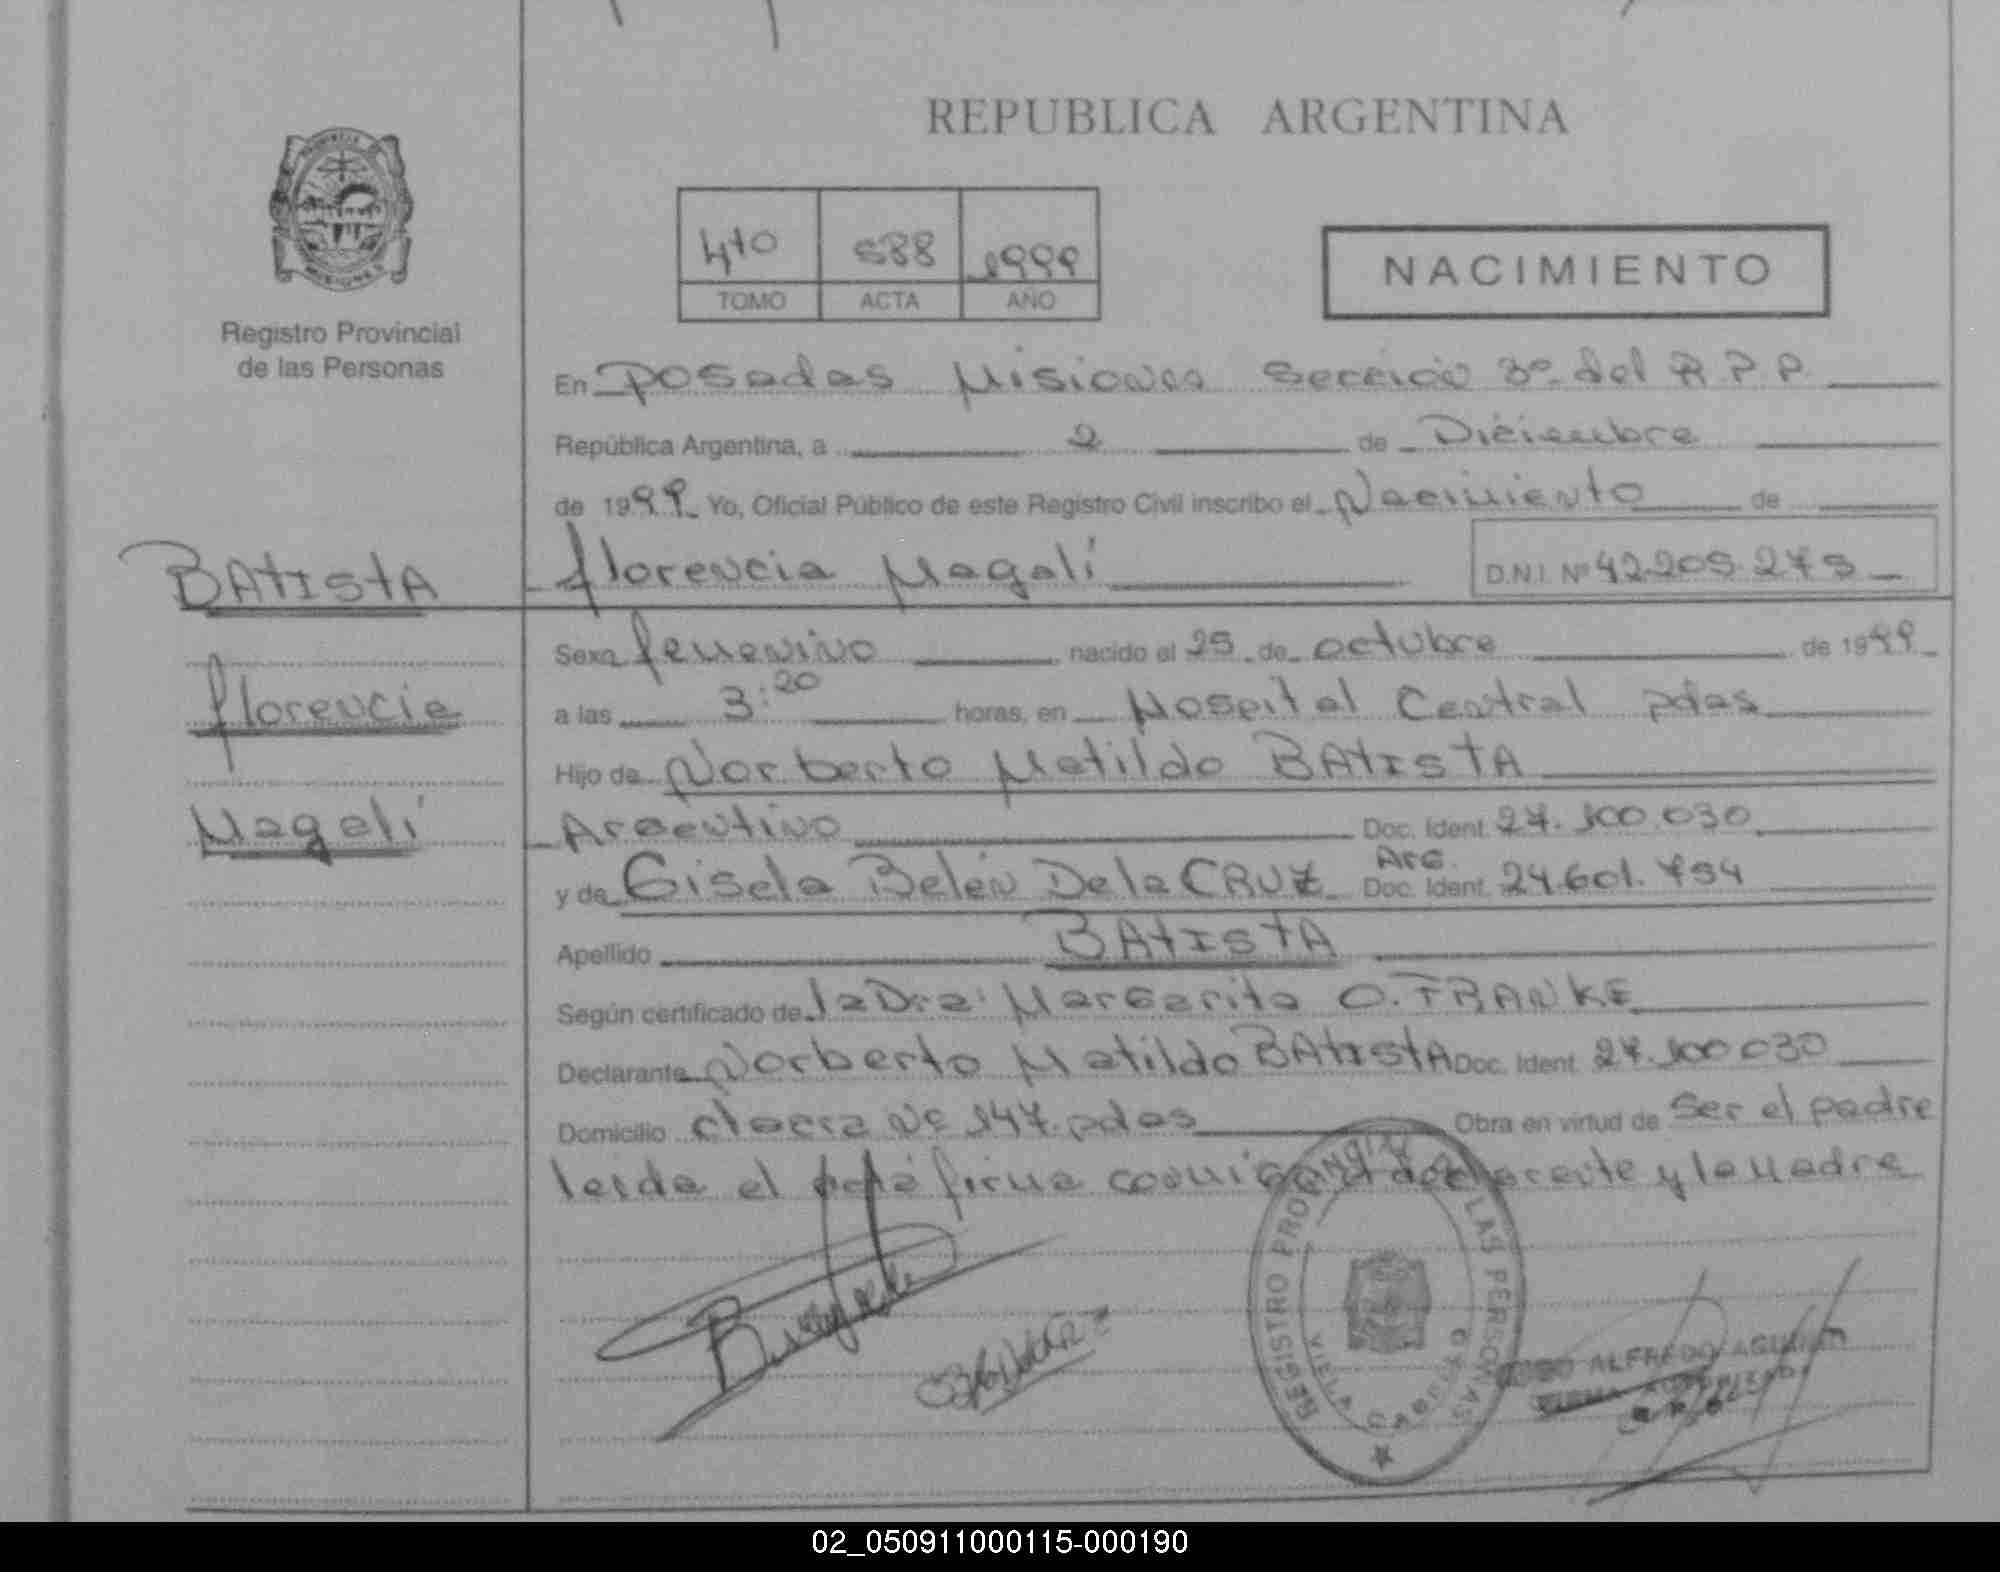 REPUBLICA ARGENTINA
Registro Provincial
de las Personas
588 1999
TOMO ACTA AÑO
NACIMIENTO
En Posadas Misiones Sección 3º del R.P.P.
República Argentina, a 2 de Diciembre
de 1999 Yo, Oficial Público de este Registro Civil inscribo el Nacimiento de
BAtIstA
Florencia Magalí
D.N.I. Nº 42.205.275
Florencia
Magalí
Sexo femenino nacido el 25 de octubre de 1999
a las 3:20 horas, en Hospital Central pdas
Hijo de Norberto Matildo BAtIstA
Argentino Doc. Ident. 27.100.030
y de Gisela Belén De la CRUZ Arg. Doc. Ident. 24.601.754
Apellido BAtIstA
Según certificado de la Dra: Margarita O. FRANKE
Declarante Norberto Matildo BAtIstA Doc. Ident. 27.100.030
Domicilio chacra Nº 147 pdas Obra en virtud de ser el padre
leida el acta firma conmigo el declarante y la madre
REGISTRO PROVINCIAL DE LAS PERSONAS
ALFREDO
02_050911000115-000190